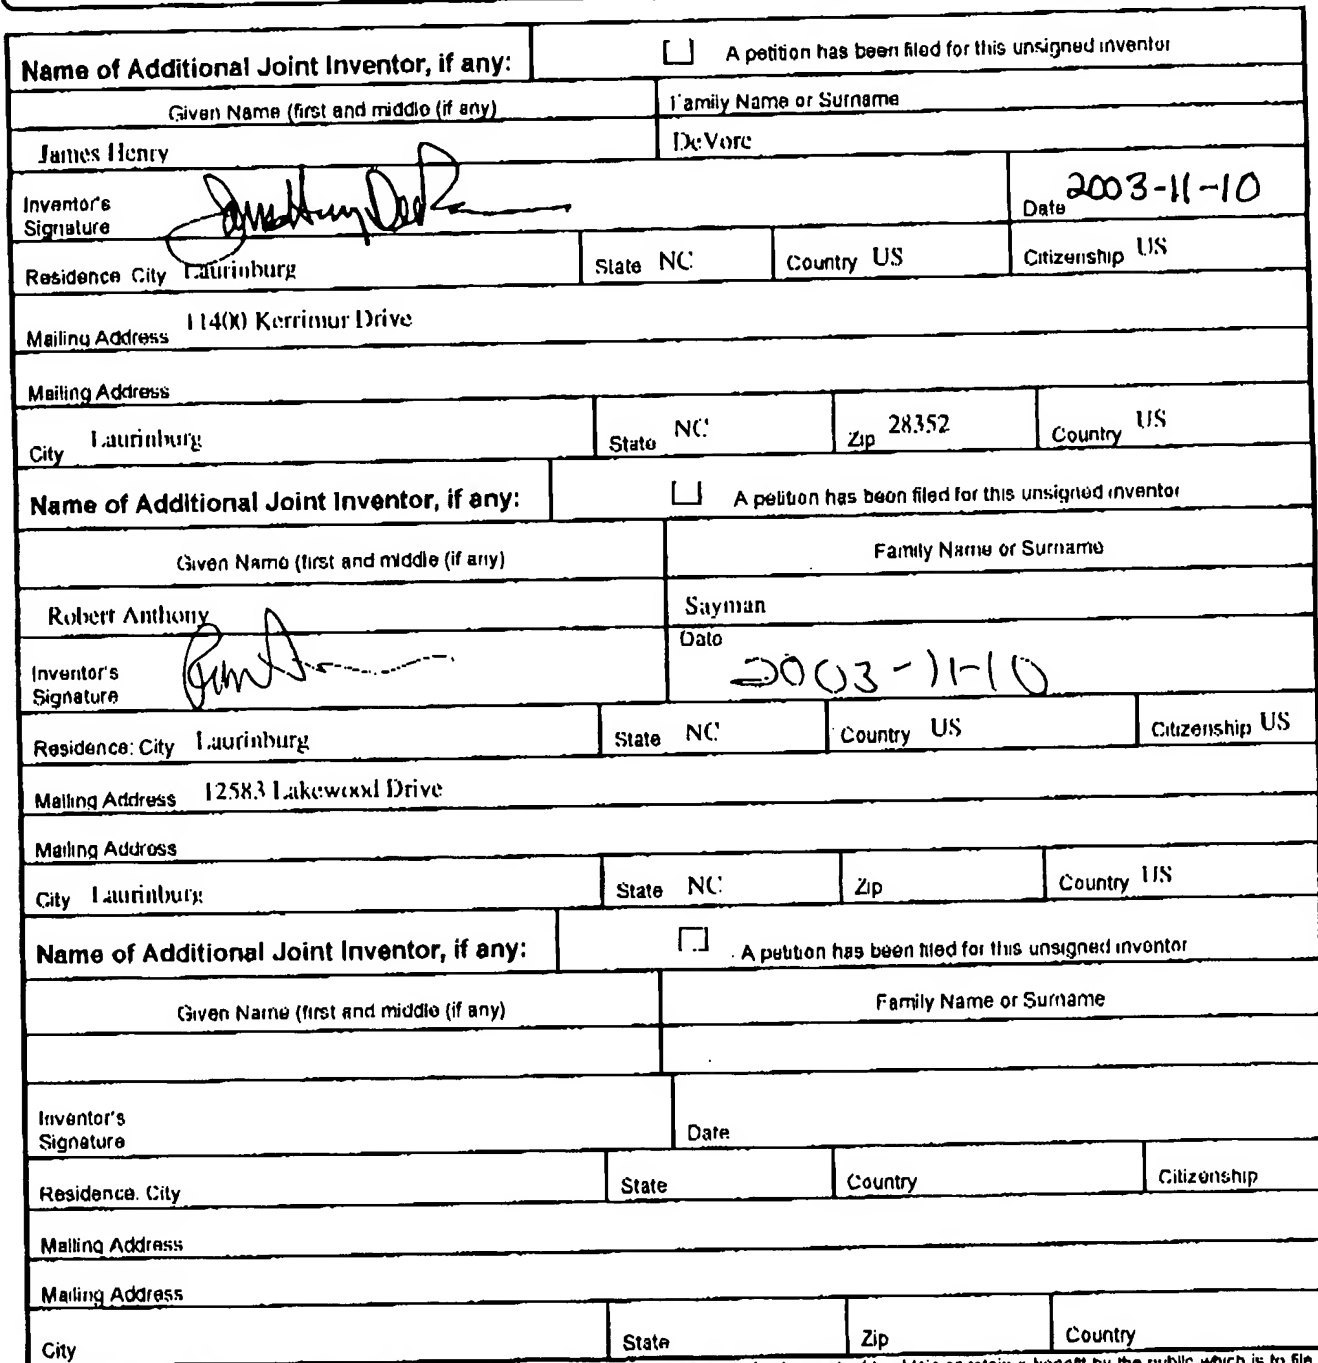 Name of Additional Joint Inventor, if any: A petition has been filed for this unsigned inventor
Given Name (first and middle (if any) Family Name or Surname
James Henry DeVore
Inventor's Signature Date 2003-11-10
Residence City Laurinburg State NC Country US Citizenship US
Mailing Address 11400 Kerrimur Drive
Mailing Address
City Laurinburg State NC Zip 28352 Country US
Name of Additional Joint Inventor, if any: A petition has been filed for this unsigned inventor
Given Name (first and middle (if any) Family Name or Surname
Robert Anthony Sayman
Inventor's Signature Date 2003-11-10
Residence: City Laurinburg State NC Country US Citizenship US
Mailing Address 12583 Lakewood Drive
Mailing Address
City Laurinburg State NC Zip Country US
Name of Additional Joint Inventor, if any: A petition has been filed for this unsigned inventor
Given Name (first and middle (if any) Family Name or Surname
Inventor's Signature Date
Residence. City State Country Citizenship
Mailing Address
Mailing Address
City State Zip Country
a benefit by the public which is to file